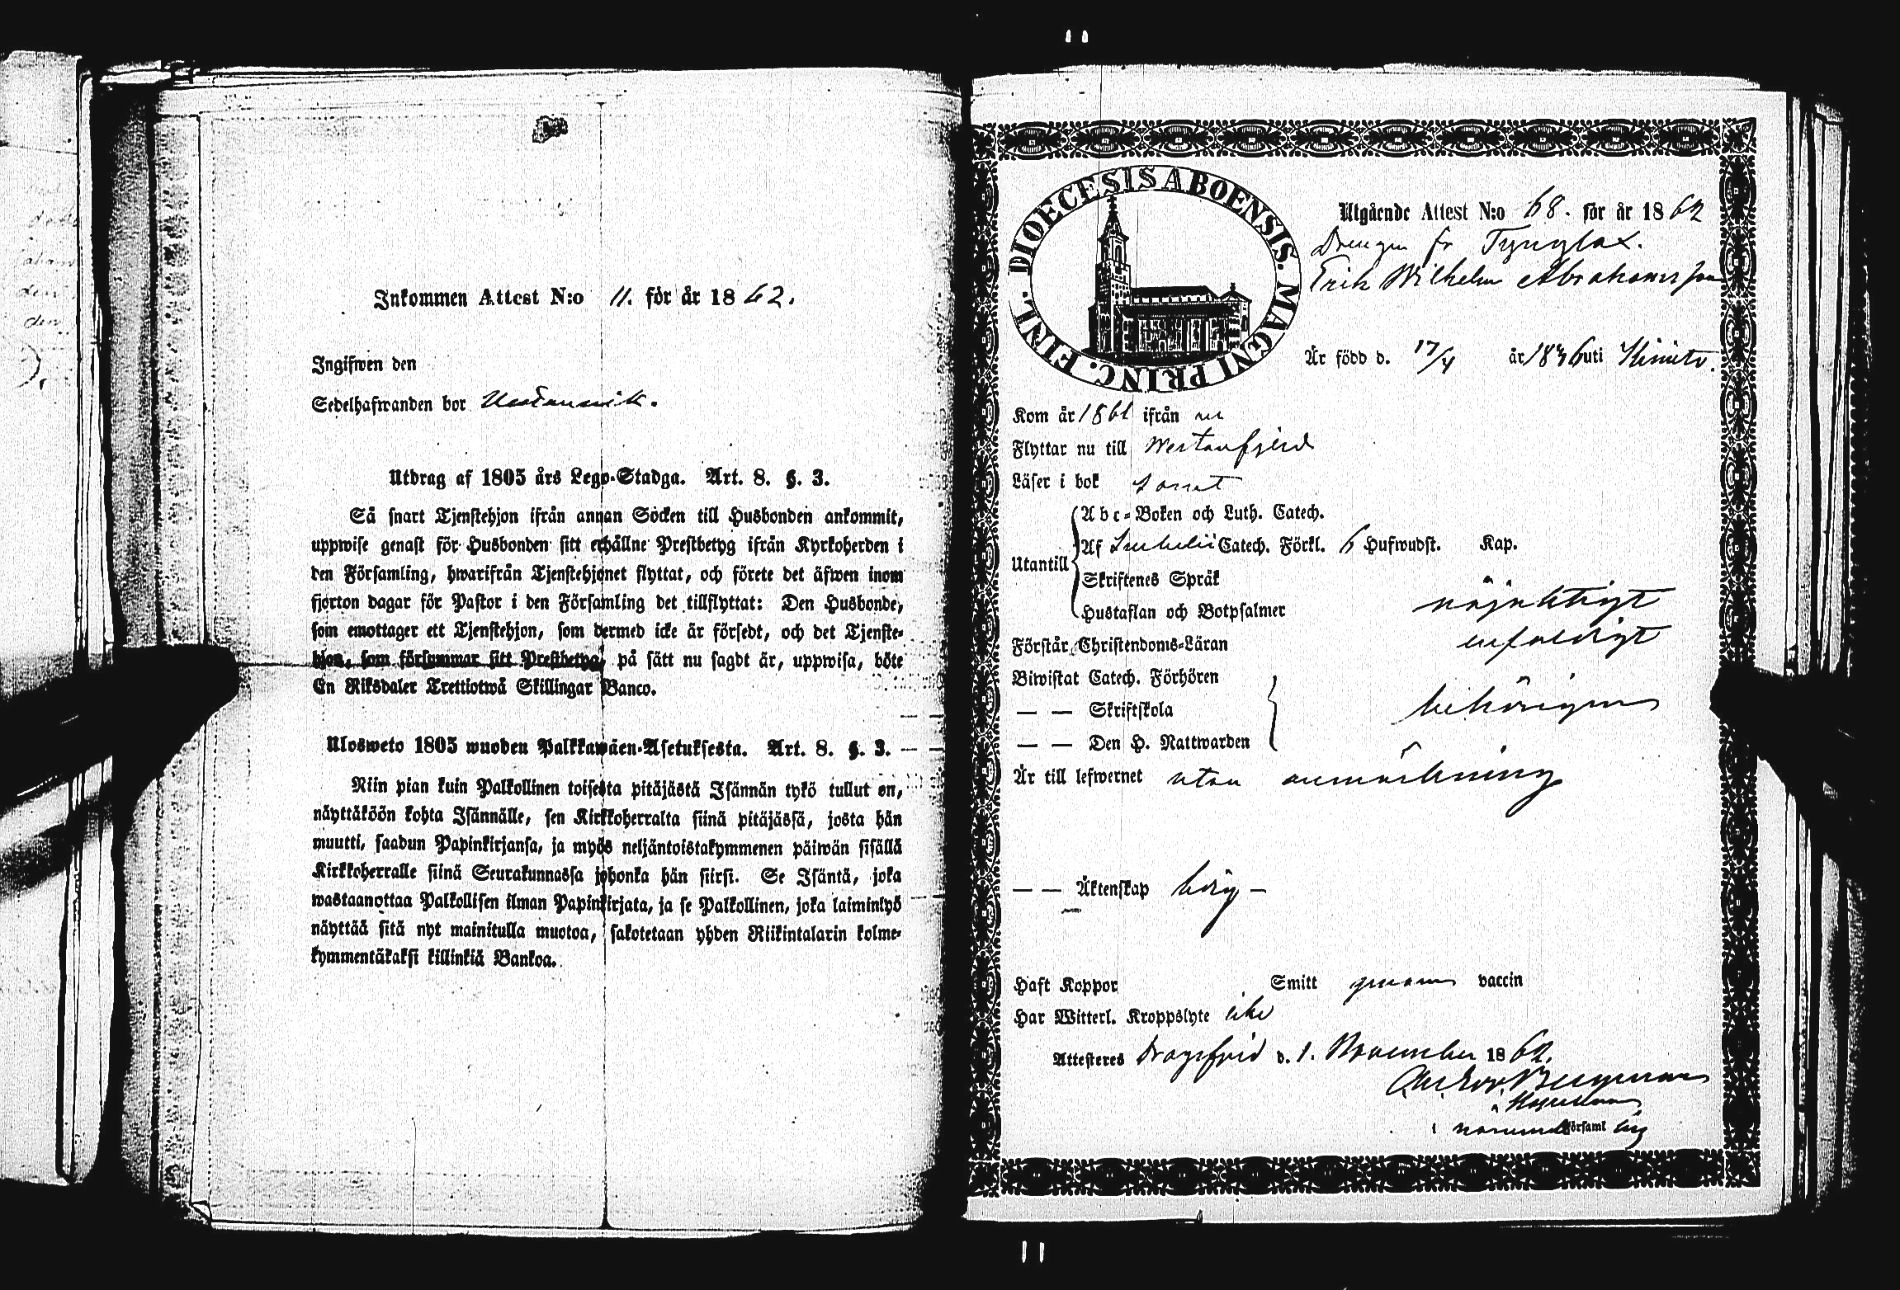 Inkommen Attest N:o 11. för år 1862.
Ingifwen den
Sedelhafwanden bor
Utdrag af 1805 års Lego-Stadga. Art. 8. §. 3.
Så snart Tjenstehjon ifrån annan Socken till Husbonden ankommit,
uppwise genast för Husbonden sitt erhållne Prestbetyg ifrån Kyrkoherden i
den Församling, hwarifrån Tjenstehjonet flyttat, och förete det äfwen inom
fjorton dagar för Pastor i den Församling det tillflyttat: Den Husbonde,
som emottager ett Tjenstehjon, som dermed icke är försedt, och det Tjenste-
hjon, som försummar sitt Prestbetyg, på sätt nu sagdt är, uppwisa, böte
En Riksdaler Trettiotwå Skillingar Banco.
Ulosweto 1805 wuoden Palkkawäen-Asetuksesta. Art. 8. §. 3.
Niin pian kuin Palkollinen toisesta pitäjästä Isännän tykö tullut on,
näyttäköön kohta Isännälle, sen Kirkkoherralta siinä pitäjässä, josta hän
muutti, saadun Papinkirjansa, ja myös neljäntoistakymmenen päiwän sisällä
Kirkkoherralle siinä Seurakunnassa johonka hän siirsi. Se Isäntä, joka
wastaanottaa Palkollisen ilman Papinkirjata, ja se Palkollinen, joka laiminlyö
näyttää sitä nyt mainitulla muotoa, sakotetaan yhden Riikintalarin kolme-
kymmentäkaksi killinkiä Bankoa.
DIOECESIS ABOENSIS. MAGNI PRINC. FINL.
Utgående Attest N:o 68. för år 1862
Drengen fr Tynglax.
Erik Wilhelm Abrahamsson
Är född d. 17/4 år 1846 uti Kimito.
Kom år 1861 ifrån
Flyttar nu till Westanfjerd
Läser i bok
Utantill
Abc-Boken och Luth. Catech.
Af Catech. Förkl. 6 Hufwudst. Kap.
Skriftenes Språk
Hustaflan och Botpsalmer nöjaktigt
Förstår Christendoms-Läran enfaldigt
Biwistat Catech. Förhören
— — Skriftskola behörigen
— — Den H. Nattwarden
Är till lefwernet utan anmärkning
— — Äktenskap ledig —
Haft Koppor Smitt genom vaccin
Har Witterl. Kroppslyte icke
Attesteres Dragsfjerd d. 1. November 1862.
Bergman
i församl